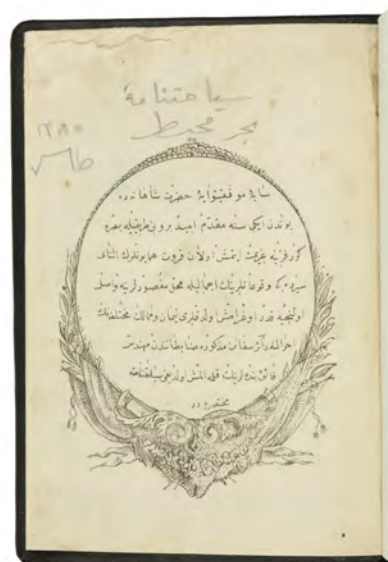 سیاحتنامهٔ
بحر محیط
١٢٨٥
سایهٔ موفقیتوایهٔ حضرت شاهانه ده
بوندن ایکی سنه مقدم امید برونی طریقیله بصره
کورفزینه عزیمت ایتمش اولان قروت همایونلرك اثنای
سیر و وقوعاتلرینك اجمالیله محل مقصودلرینه واصل
اولنجیه قدر اوغرامش اولدقلری لیمان و ممالك مختلفه نك
احوالنه دائر سفائن مذکوره ضابطانندن مهندس
فائق بنده لرینك قلمه المش اولدیغی سیاحتنامه
مختصره در